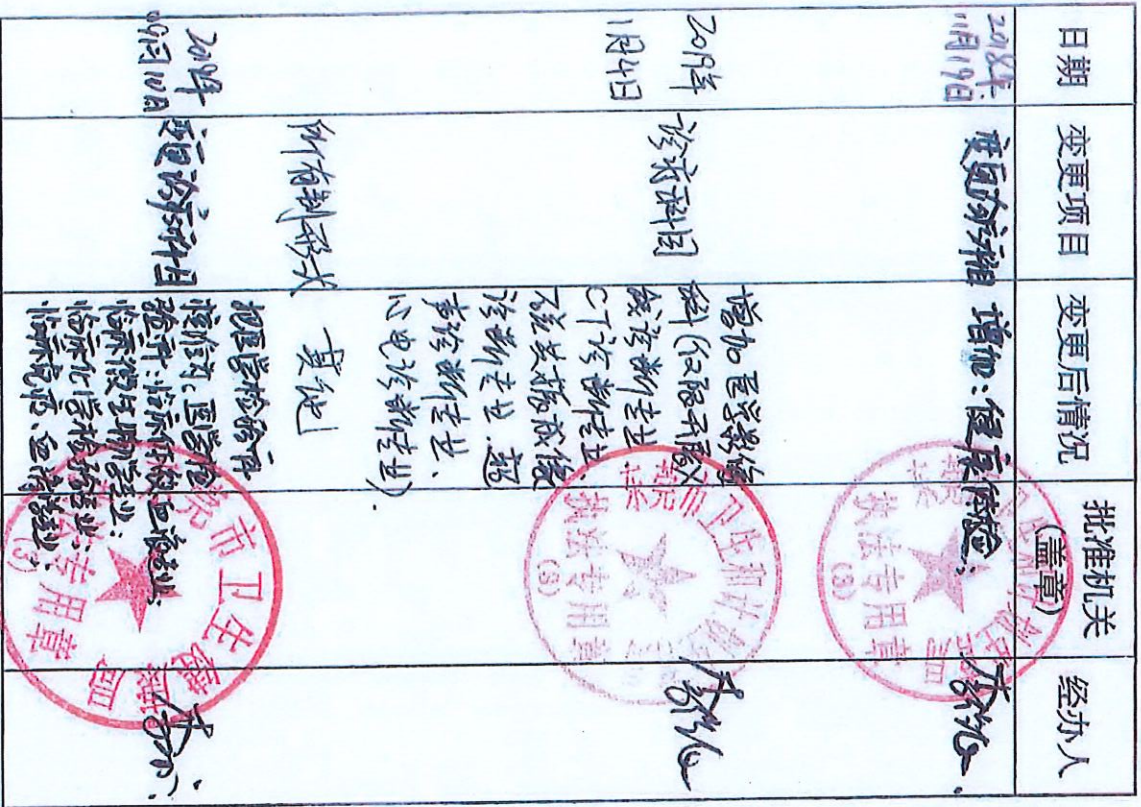 日期
变更项目
变更后情况
批准机关
(盖章)
经办人
2018年
11月19日
变更诊疗科目
增加:健康体检;
执法专用章
(3)
2019年
1月4日
诊疗科目
增加医学影像
科(仅限开展X
线诊断专业
CT诊断专业、
磁共振成像
诊断专业、超
声诊断专业、
心电诊断专业)
东莞市卫生和计划生育局
执法专用章
(3)
所有制形式
其他
2019年
变更诊疗科目
医学检
验科:临床体液、血液专业;
临床微生物学专业;
临床化学检验专业;
临床免疫、血清学专业;
东莞市卫生健康局
专用章
(3)